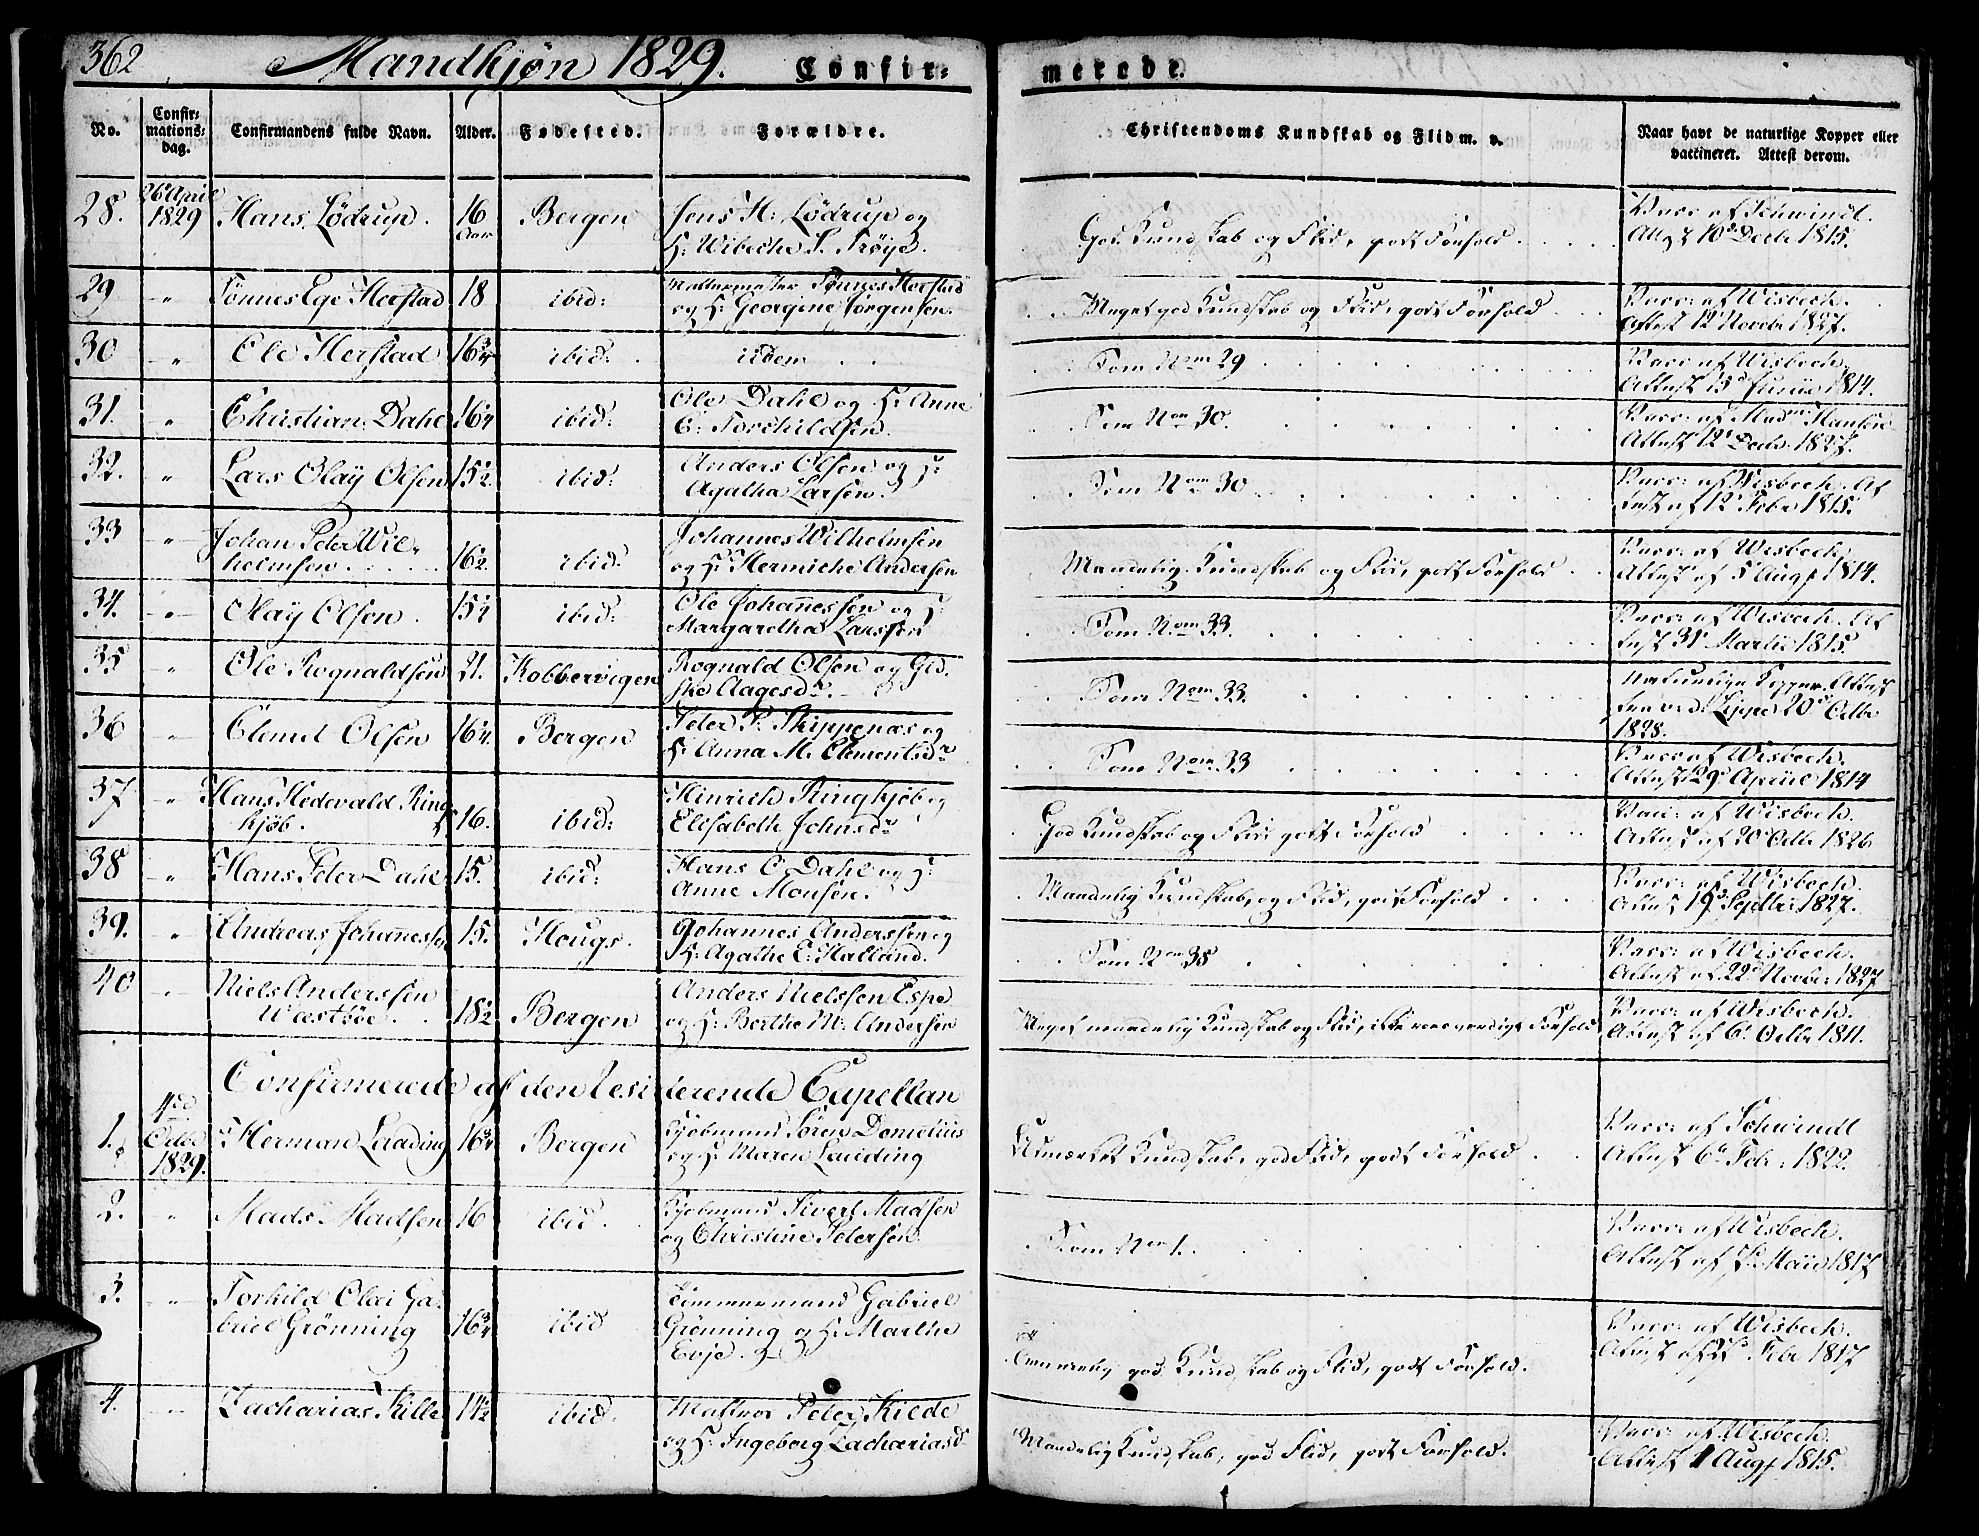 362
Mandkjøn 1829.
Confir=
merede.
No.
Confir=
mations=
dag.
Confirmandens fulde Navn.
Alder.
Fødested.
Forældre.
Christendoms Kundskab og Flid m. v.
Naar havt de naturlige Kopper eller
vaccineret. Attest derom.
28.
26 April
1829
Hans Lödrup.
16
Aar
Bergen
Jens H: Lödrup og
H: Wibeche S. Trøye.
God Kundskab og Flid, godt Forhold
Vacc af Schwindt.
Attest 16 Decbr 1815.
29
"
Tönnes Ege Herstad
18
ibid:
Tönnes Herstad
og H: Georgine Jørgensen.
Meget god Kundskab og Flid, godt Forhold
Vacc: af Wisbech.
Attest 12 Novebr 1827.
30
"
Ole Herstad
16¾
ibid:
iidem
Som Nom 29
Vacc af Wisbech.
Attest 15 Junii 1814.
31.
"
Christian Dahl
16¼
ibid:
Ole Dahl og H: Anne
C: Torchildsen.
Som Nom 30.
Vacc: af Mad. Hansen
Attest 12 Decbr. 1827.
32.
"
Lars Olaÿ Olsen
15½
ibid:
Anders Olsen og H:
Agatha Larsen.
Som Nom 30
Vacc: af Wisbech. At
test af 12 Febr 1815.
33
"
Johan Peter Wil-
helmsen
16½
ibid:
Johannes Wilhelmsen
og H: Hermiche Andersen
Maadelig Kundskab og Flid, godt Forhold
Vacc: af Wisbech.
Attest af 5 Augs 1814.
34.
"
Olaÿ Olsen
15¼
ibid:
Ole Johannessen og H:
Margaretha Larssen
Som Nom 33.
Vacc: af Wisbech. At
test 31 Martii 1815.
35
"
Ole Rognaldsen
21.
Kobbervigen
Rognald Olsen og GLd.
ske Aagesdr.
Som Nom 33.
naturlige Kopper. Attest
fra ved Lippe 20 Octbr
1828.
36
"
Clemet Olsen
16¼
Bergen
Peter P. Skippenæs og
H: Anna M. Clementsdr
Som Nom 33
Vacc af Wisbech.
Attest 29 Apriil 1814
37
"
Hans Hedevald Ring
kjøb.
16.
ibid:
Hinrich Ringkjøb og
Elisabeth Johnsdr
God Kundskab og Flid godt Forhold
Vacc: af Wisbech.
Attest af 20 Octbr 1826
38
"
Hans Peter Dahl
15.
ibid:
Hans C. Dahl og H:
Anne Monsen.
Maadelig Kundskab, og Flid, godt Forhold
Vacc: af Wisbech.
Attest 19 Septbr 1827.
39.
"
Andreas Johannessen
15.
Hougs.
Johannes Anderssen og
H: Agathe E: Halland.
Som Nom 35
Vacc: af Wisbech.
Attest af 22 Novbr: 1827
40
"
Niels Anderssen
Wæstbøe.
18½
Bergen
Anders Nielssen Espe
og H: Berthe M: Andersen
Meget maadelig Kundskab og Flid, Forhold
Vacc: af Wisbech.
Attest af 6 Octbr 1811.
Confirmerede af den residerende Capellan
1.
4de
Octbr
1829.
Herman Laading
16¾
Bergen
Kjøbmand Sören Domelius
og H: Maren Lauding
Udmærket Kundskab, god Flid, godt Forhold
Vacc: af Schwindt
Attest 6 Febr: 1822.
2.
"
Mads Madsen
16
ibid.
Kjøbmand Sivert Madsen
og Christine Petersen.
Som Nr 1.
Vacc: af Wisbech.
Attest af 7 Maii 1817
3.
"
Torkild Olai Ga-
briel Grönning
16¾
ibid
Tömmermand Gabriel
Grönning og H: Marthe
Evje.
god Kundskab og Flid, godt Forhold.
Vacc: af Wisbech.
Attest Febr 1817
4.
"
Zacharias Kille
14½
ibid.
Matros Peter Kilde
og H: Ingeborg Zachariasd
Maadelig Kundskab, god Flid, godt Forhold.
Vacc: af Wisbech.
Attest 1 Augs 1815.